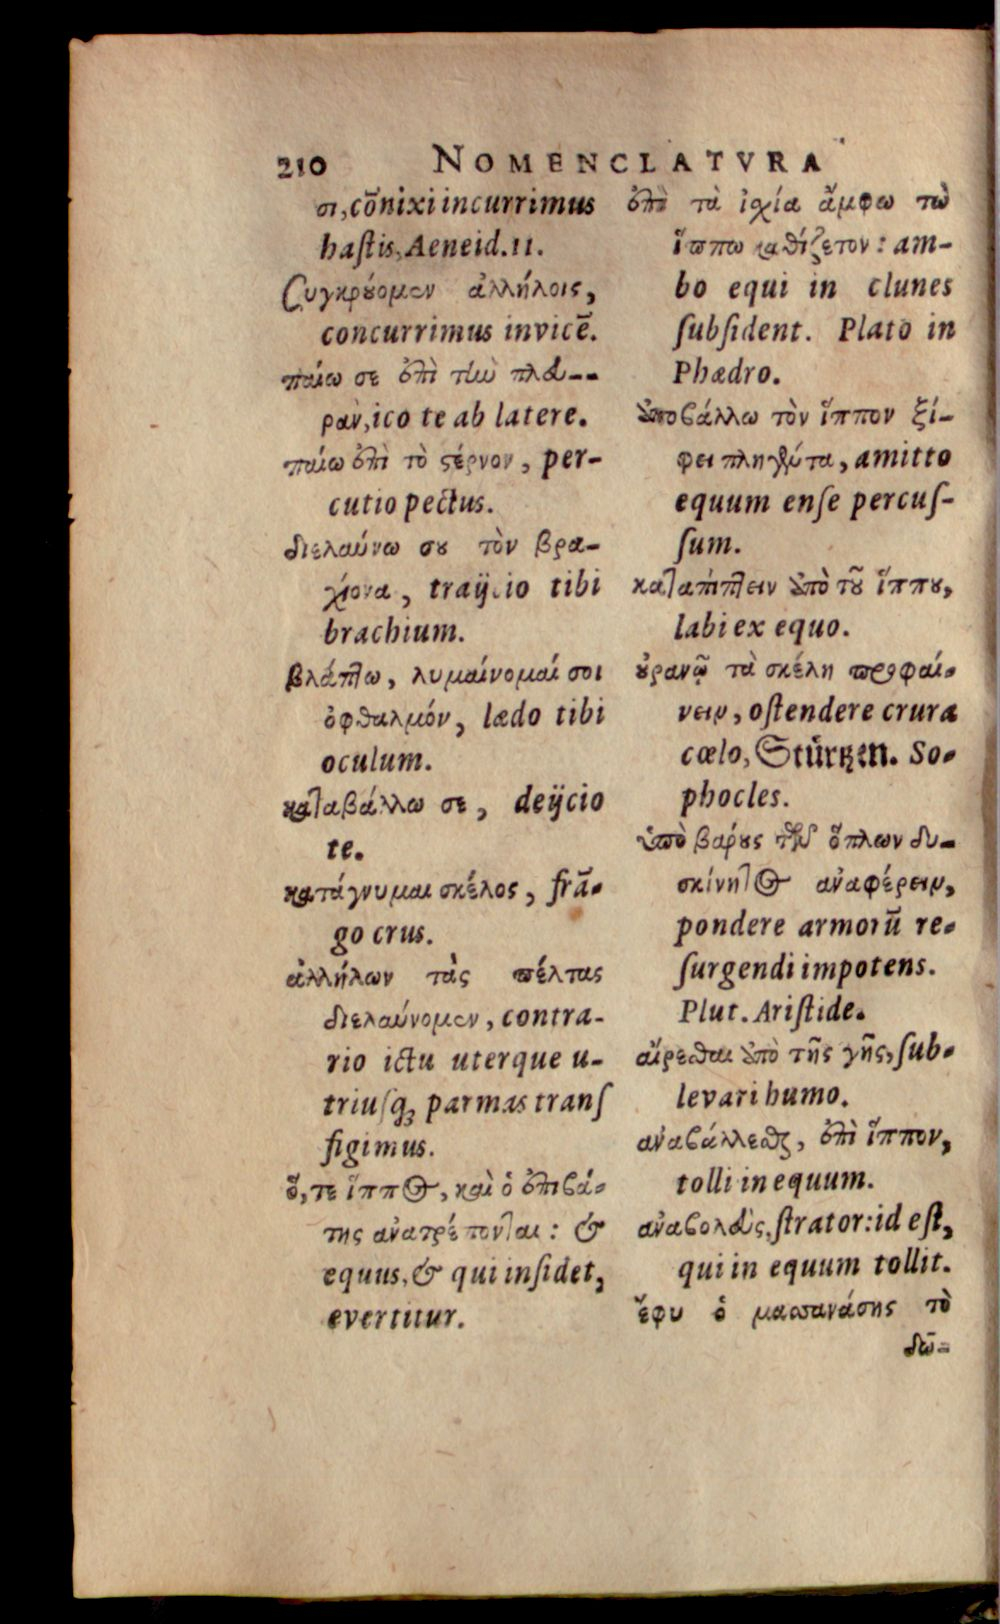 210 NOMENCLATVRA
σι, cōnixi incurrimus
haſtis, Aeneid. 11.
Συγκρούομεν ἀλλήλοις,
concurrimus invicē.
παίω σε ἐπὶ τὴν πλευ--
ράν, ico te ab latere.
παίω ἐπὶ τὸ στέρνον, per-
cutio pectus.
διελαύνω σου τὸν βρα-
χίονα, traijcio tibi
brachium.
βλάπτω, λυμαίνομαί σοι
ὀφθαλμόν, lædo tibi
oculum.
καταβάλλω σε, deijcio
te.
κατάγνυμαι σκέλος, frā-
go crus.
ἀλλήλων τὰς πέλτας
διελαύνομεν, contra-
rio ictu uterque u-
triuſq; parmas tranſ
figimus.
ὅ, τε ἵππος, καὶ ὁ ἐπιβά-
της ἀνατρέπονται: &
equus, & qui inſidet,
evertitur.
ἐπὶ τὰ ἰσχία ἄμφω τὼ
ἵππω καθίζετον: am-
bo equi in clunes
ſubſident. Plato in
Phædro.
ἀποβάλλω τὸν ἵππον ξί-
φει πληγέντα, amitto
equum enſe percuſ-
ſum.
καταπίπτειν ἀπὸ τοῦ ἵππου,
labi ex equo.
οὐρανῷ τὰ σκέλη προφαί-
νειν, oſtendere crura
cœlo, Stürtzen. So-
phocles.
ὑπὸ βαρους τῶν ὅπλων δυ-
σκίνητος ἀναφέρειν,
pondere armorū re-
ſurgendi impotens.
Plut. Ariſtide.
αἴρεσθαι ἀπὸ τῆς γῆς, ſub-
levari humo.
ἀναβάλλεσθαι, ἐπὶ ἵππον,
tolli in equum.
ἀναβολεὺς, ſtrator: id eſt,
qui in equum tollit.
ἔφυ ὁ μασσανάσης τὸ
δῶ-